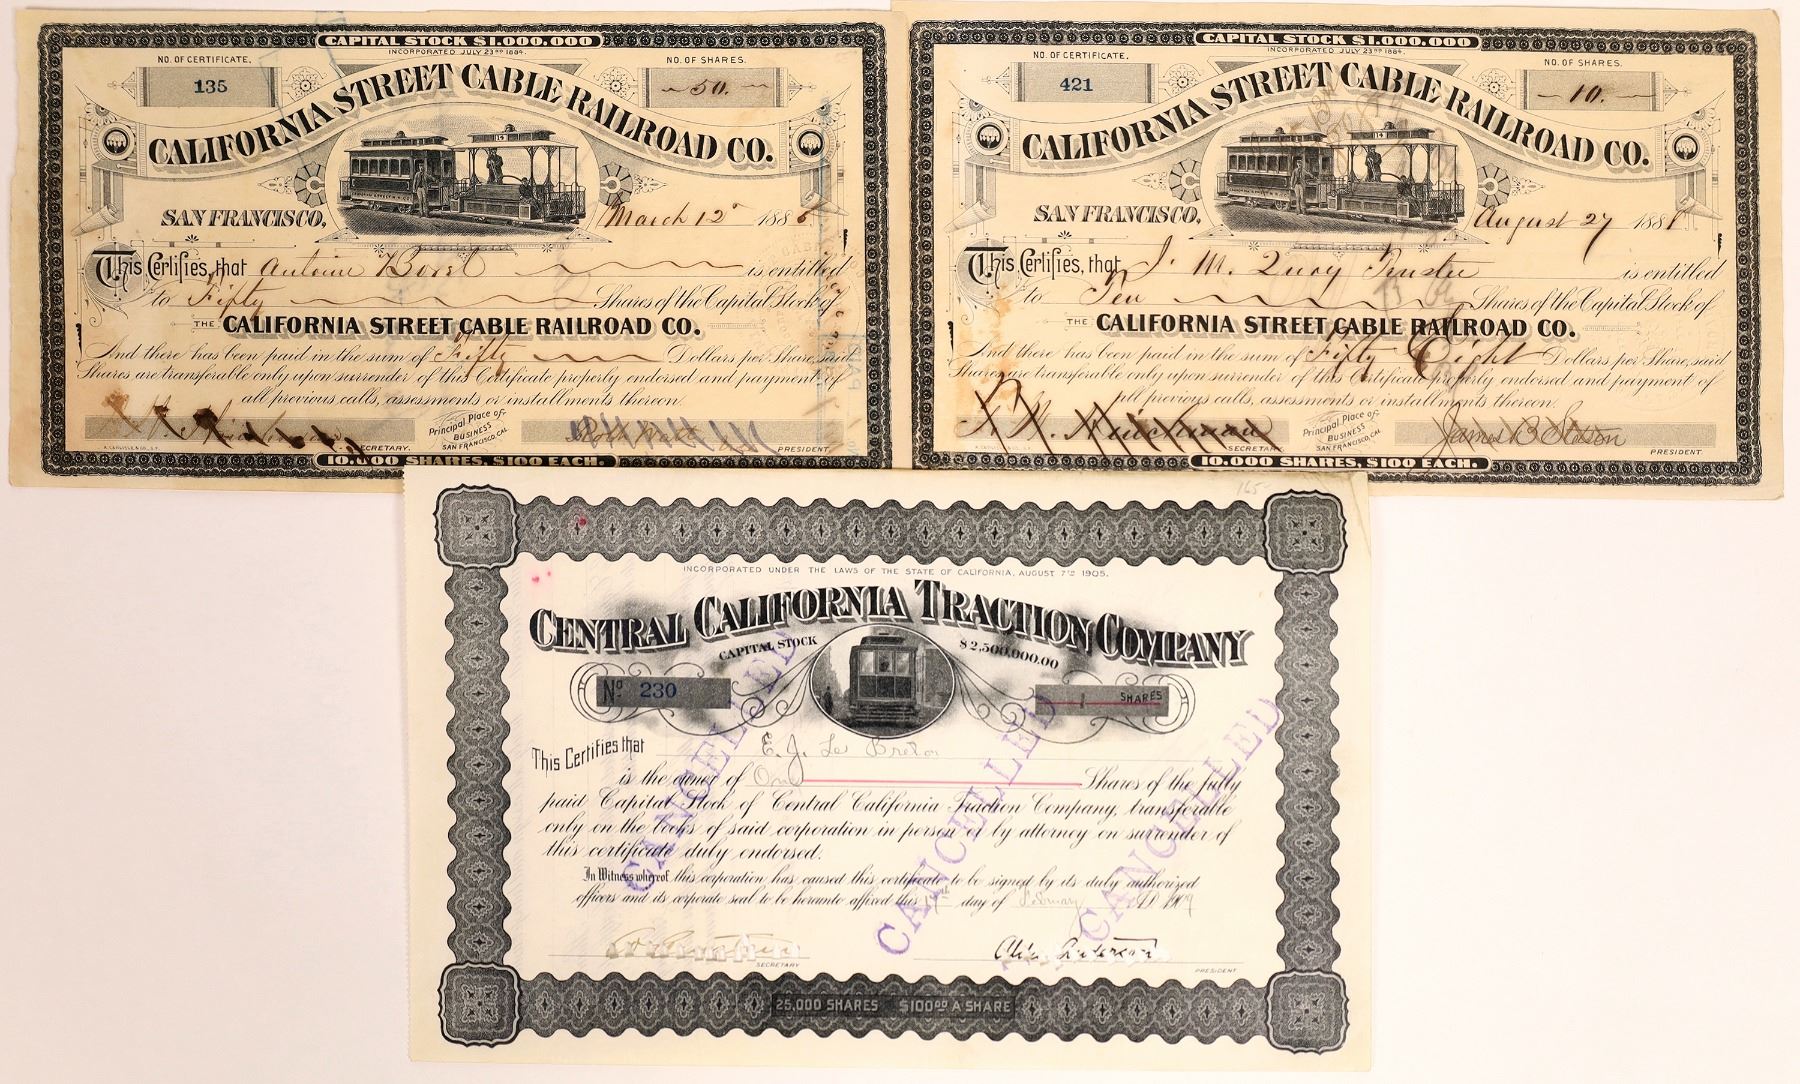 CAPITAL STOCK $1,000,000
INCORPORATED JULY 23RD 1884.
NO. OF CERTIFICATE.
135
NO. OF SHARES.
50.
CALIFORNIA STREET CABLE RAILROAD CO.
SAN FRANCISCO, March 12 1886
This Certifies, that Antoine Borel is entitled
to Fifty Shares of the Capital Stock of
THE CALIFORNIA STREET CABLE RAILROAD CO.
And there has been paid in the sum of Fifty Dollars per Share, said
Shares are transferable only upon surrender of this Certificate properly endorsed and payment of
all previous calls, assessments or installments thereon.
SECRETARY.
Principal Place of
BUSINESS
SAN FRANCISCO, CAL
PRESIDENT.
10,000 SHARES, $100 EACH.
CAPITAL STOCK $1,000,000
INCORPORATED JULY 23RD 1884.
NO. OF CERTIFICATE.
421
NO. OF SHARES.
10.
CALIFORNIA STREET CABLE RAILROAD CO.
SAN FRANCISCO, August 27 188
This Certifies, that J. M. Quay Trustee is entitled
to Ten Shares of the Capital Stock of
THE CALIFORNIA STREET CABLE RAILROAD CO.
And there has been paid in the sum of Fifty Eight Dollars per Share, said
Shares are transferable only upon surrender of this Certificate properly endorsed and payment of
all previous calls, assessments or installments thereon.
Hinchman
SECRETARY.
Principal Place of
BUSINESS
SAN FRANCISCO, CAL
James B Stetson
PRESIDENT.
10,000 SHARES, $100 EACH.
INCORPORATED UNDER THE LAWS OF THE STATE OF CALIFORNIA, AUGUST 7TH 1905.
CENTRAL CALIFORNIA TRACTION COMPANY
CAPITAL STOCK $2,500,000.00
No. 230
1 SHARES
This Certifies that E. J. Le Breton
is the owner of One Shares of the fully
paid Capital Stock of Central California Traction Company, transferable
only on the books of said corporation in person or by attorney on surrender of
this certificate duly endorsed.
In Witness whereof this corporation has caused this certificate to be signed by its duly authorized
officers and its corporate seal to be hereunto affixed this day of February A.D. 1909
CANCELLED
CANCELLED
CANCELLED
SECRETARY
Anderson
PRESIDENT
25,000 SHARES $100.00 A SHARE